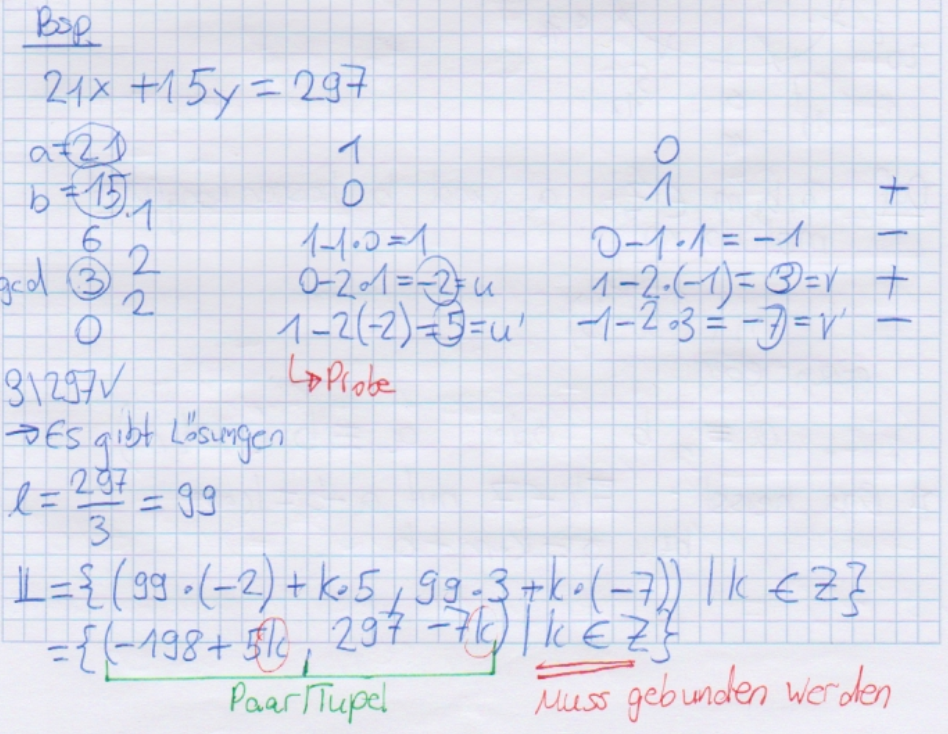 Bsp.
21x + 15y = 297
a = 21 1 0
b = 15 0 1 +
·1
6 1-1·0=1 0-1·1 = -1 -
gcd 3 2 0-2·1 = -2 = u 1-2·(-1) = 3 = v +
0 2 1-2(-2) = 5 = u' -1-2·3 = -7 = v' -
↳ Probe
3\297✓
→ Es gibt Lösungen
l = 297/3 = 99
𝕃 = {(99·(-2) + k·5, 99·3 + k·(-7)) | k ∈ Z}
= {(-198 + 5k, 297 - 7k) | k ∈ Z}
Paar/Tupel Muss gebunden werden